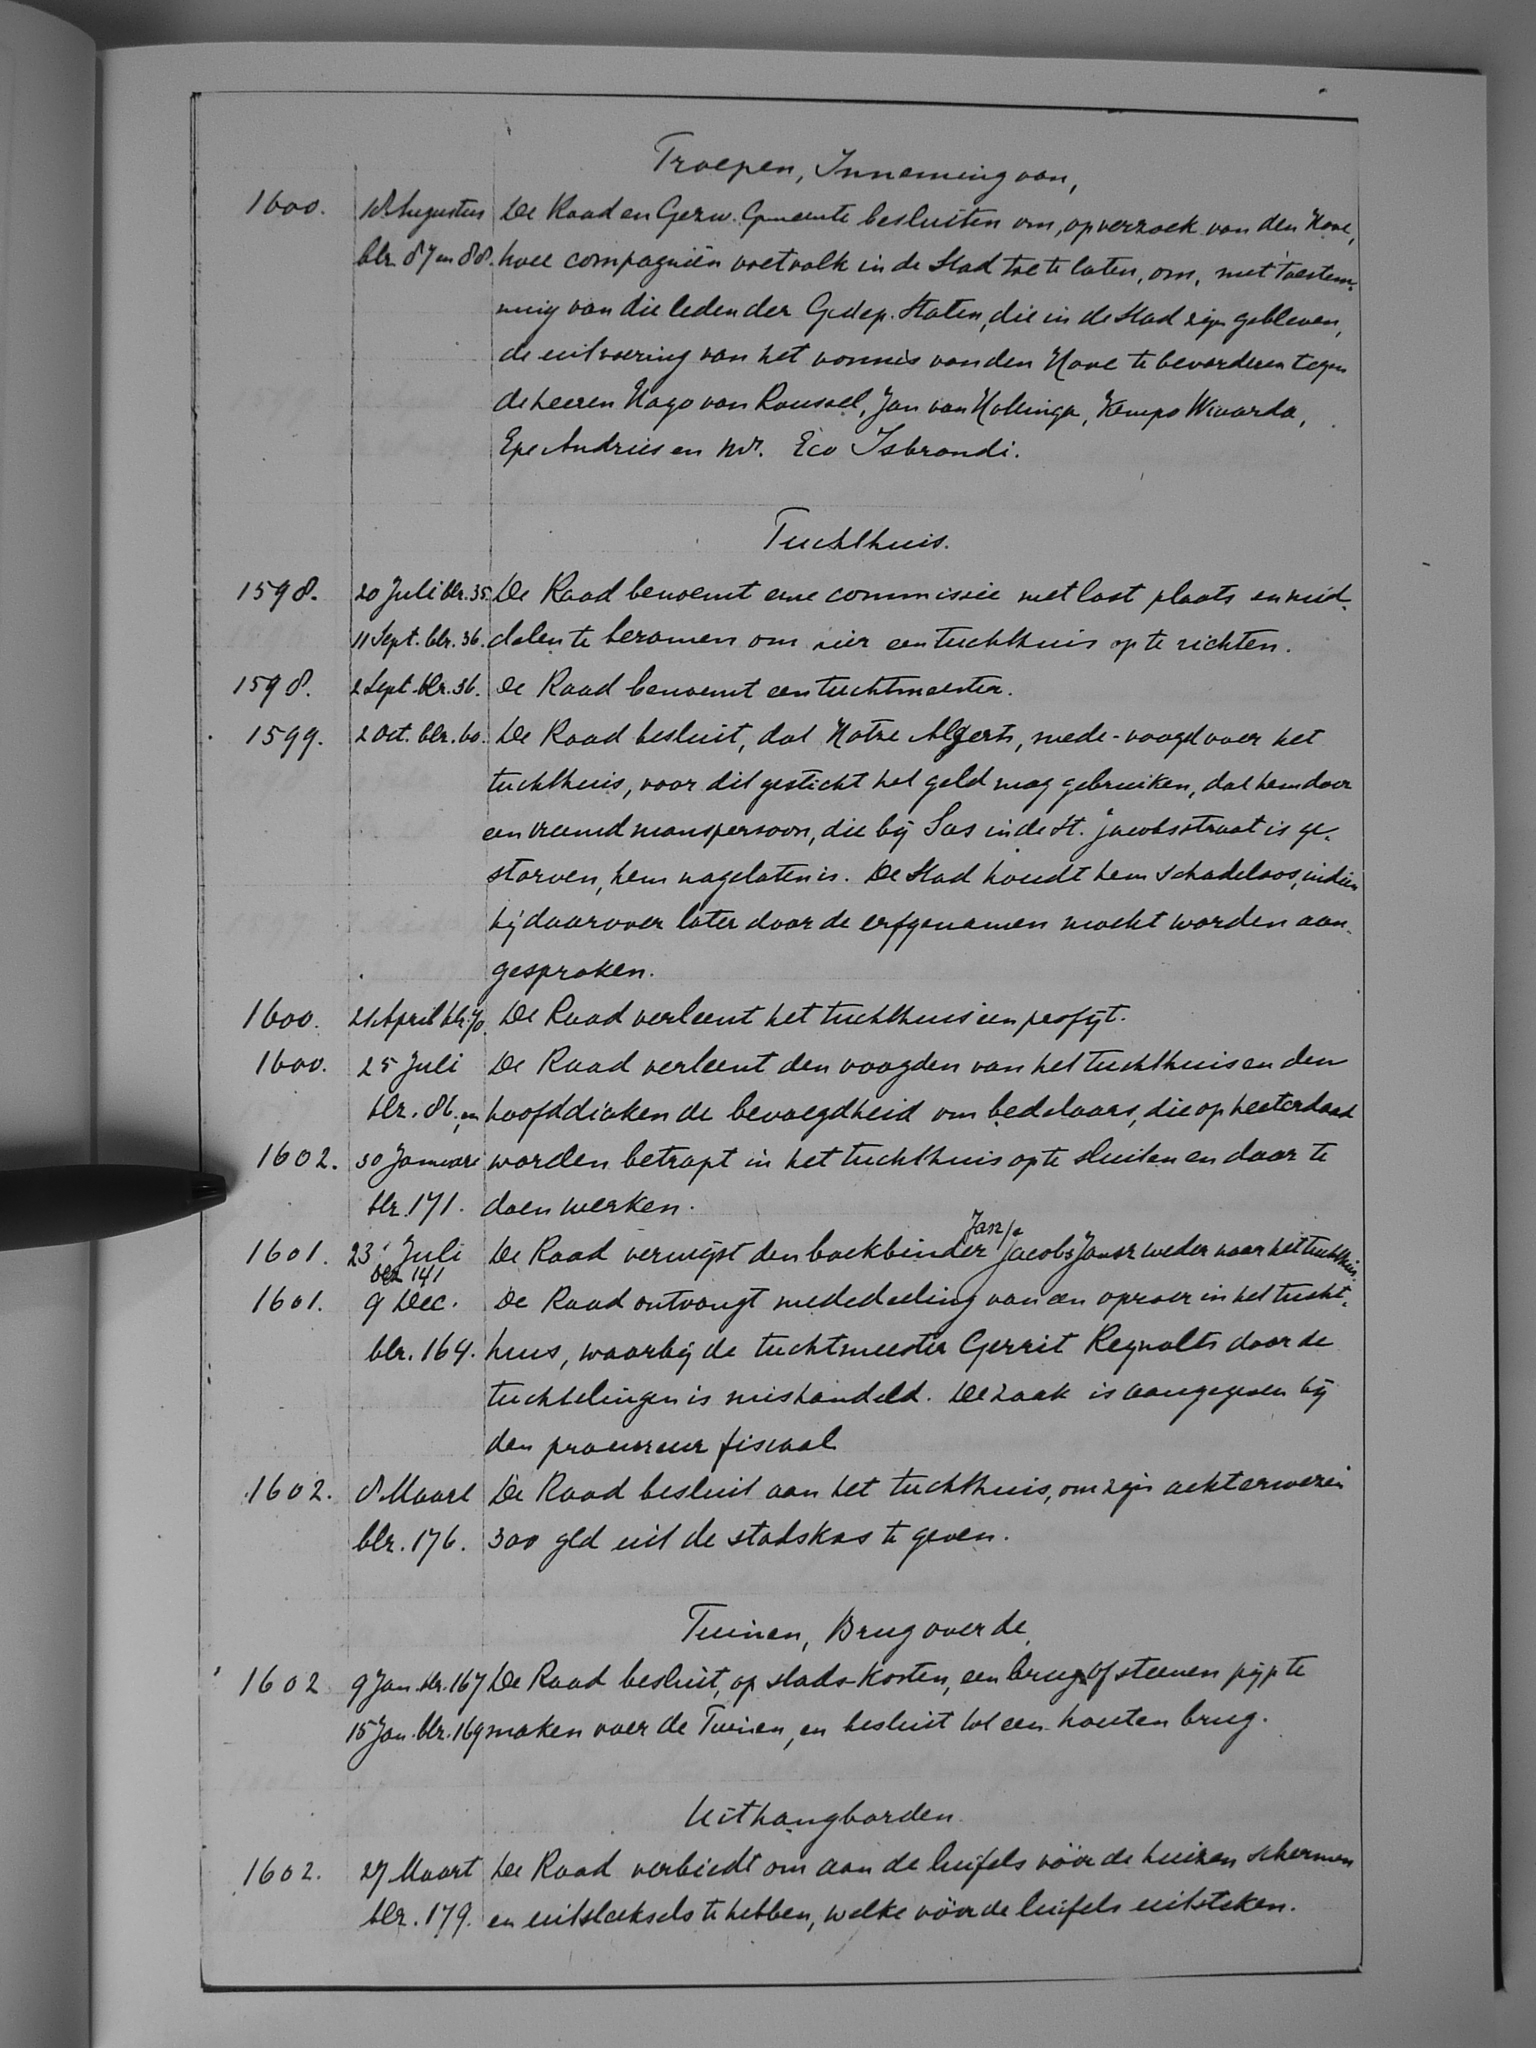 Troepen, Inneming van,
1600. Augustus De Raad en Gezw. Gemeente besluiten om, op verzoek van den Hove,
blz. 87 en 88. twee compagniën voetvolk in de Stad toe te laten, om, met toestem-
ming van die leden der Gedep. Staten, die in de Stad zijn gebleven,
de uitvoering van het vonnis van den Hove te bevorderen tegen
de heeren Hago van Rousael, Jan van Hottinga, Kempo Wiaarda,
Epe Andries en Mr. Eco Isbrandi.
Tuchthuis.
1598. 20 Juli blz. 35. De Raad benoemt eene commissie met last plaats en mid-
11 Sept. blz. 36. delen te beramen om hier een tuchthuis op te richten.
1598. 2 Sept. blz. 36. De Raad benoemt een tuchtmeester.
1599. 2 Oct. blz. 60. De Raad besluit, dat Hotze Algerts, mede-voogd voor het
tuchthuis, voor dit gesticht het geld mag gebruiken, dat hem door
een vreemd manspersoon, die bij Sas in de St. Jacobsstraat is ge-
storven, hem nagelaten is. De Stad houdt hem schadeloos, indien
hij daarover later door de erfgenamen mocht worden aan-
gesproken.
1600. 21 April blz. 70. De Raad verleent het tuchthuis een profijt.
1600. 25 Juli De Raad verleent den voogden van het tuchthuis en den
blz. 86, en hoofddiaken de bevoegdheid om bedelaars, die op heeterdaad
1602. 30 Januari worden betrapt in het tuchthuis op te sluiten en daar te
blz. 171. doen werken.
Jansz
1601. 23 Juli De Raad verwijst den boekbinder Jacobs Jansz weder naar het tuchthuis.
blz. 141
1601. 9 Dec. De Raad ontvangt mededeeling van een oproer in het tucht-
blz. 164. huis, waarbij de tuchtmeester Gerrit Reynalts door de
tuchtelingen is mishandeld. De zaak is aangegeven bij
den procureur fiscaal
1602. 8 Maart De Raad besluit aan het tuchthuis, om zijn achterwezen
blz. 176. 300 gld uit de stadskas te geven.
Tuinen, Brug over de
1602 9 Jan. blz. 167 De Raad besluit, op stads-kosten, een brug of steenen pijp te
15 Jan. blz. 169 maken over de Tuinen, en besluit tot een houten brug.
Uithangborden
1602. 27 Maart De Raad verbiedt om aan de luifels vóór de huizen schermen
blz. 179. en uitsteeksels te hebben, welke vóór de luifels uitsteken.